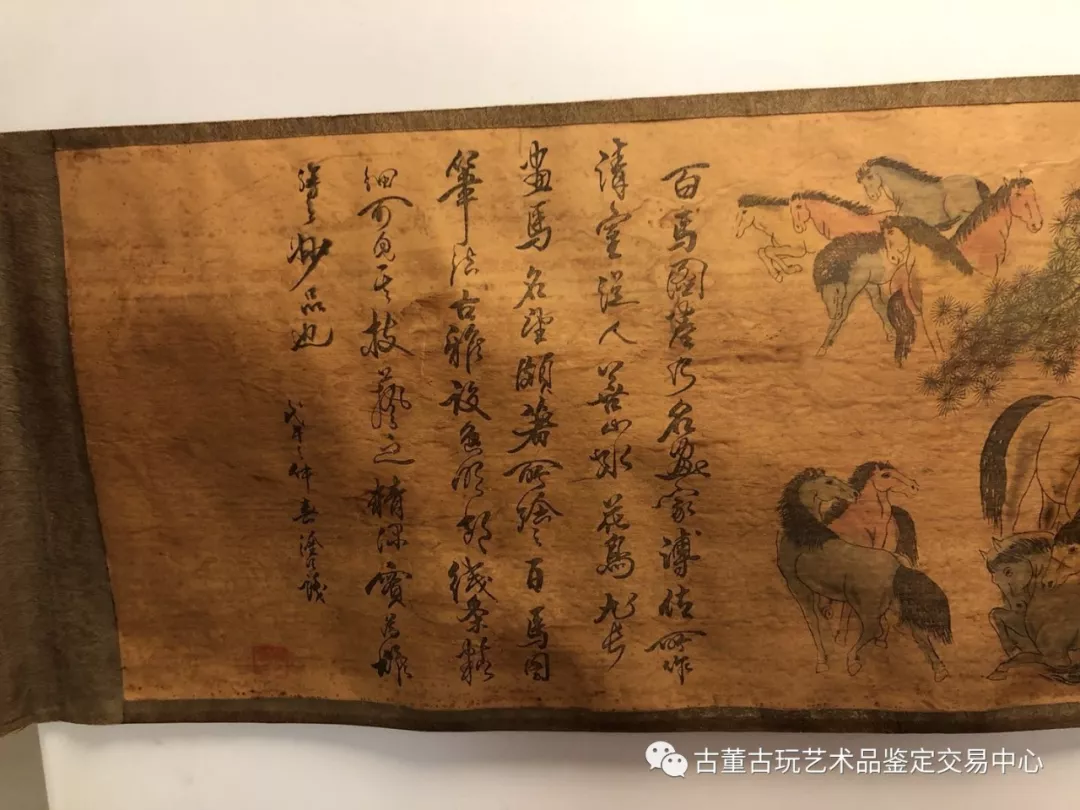 百馬圖卷乃名畫家溥佐所作
清室後人善山水花鳥尤長
畫馬名望頗著所繪百馬圖
筆法古雅設色明朗線条精
細可見其技藝之精深實為難
得之妙品也
戊午之仲春
古董古玩艺术品鉴定交易中心